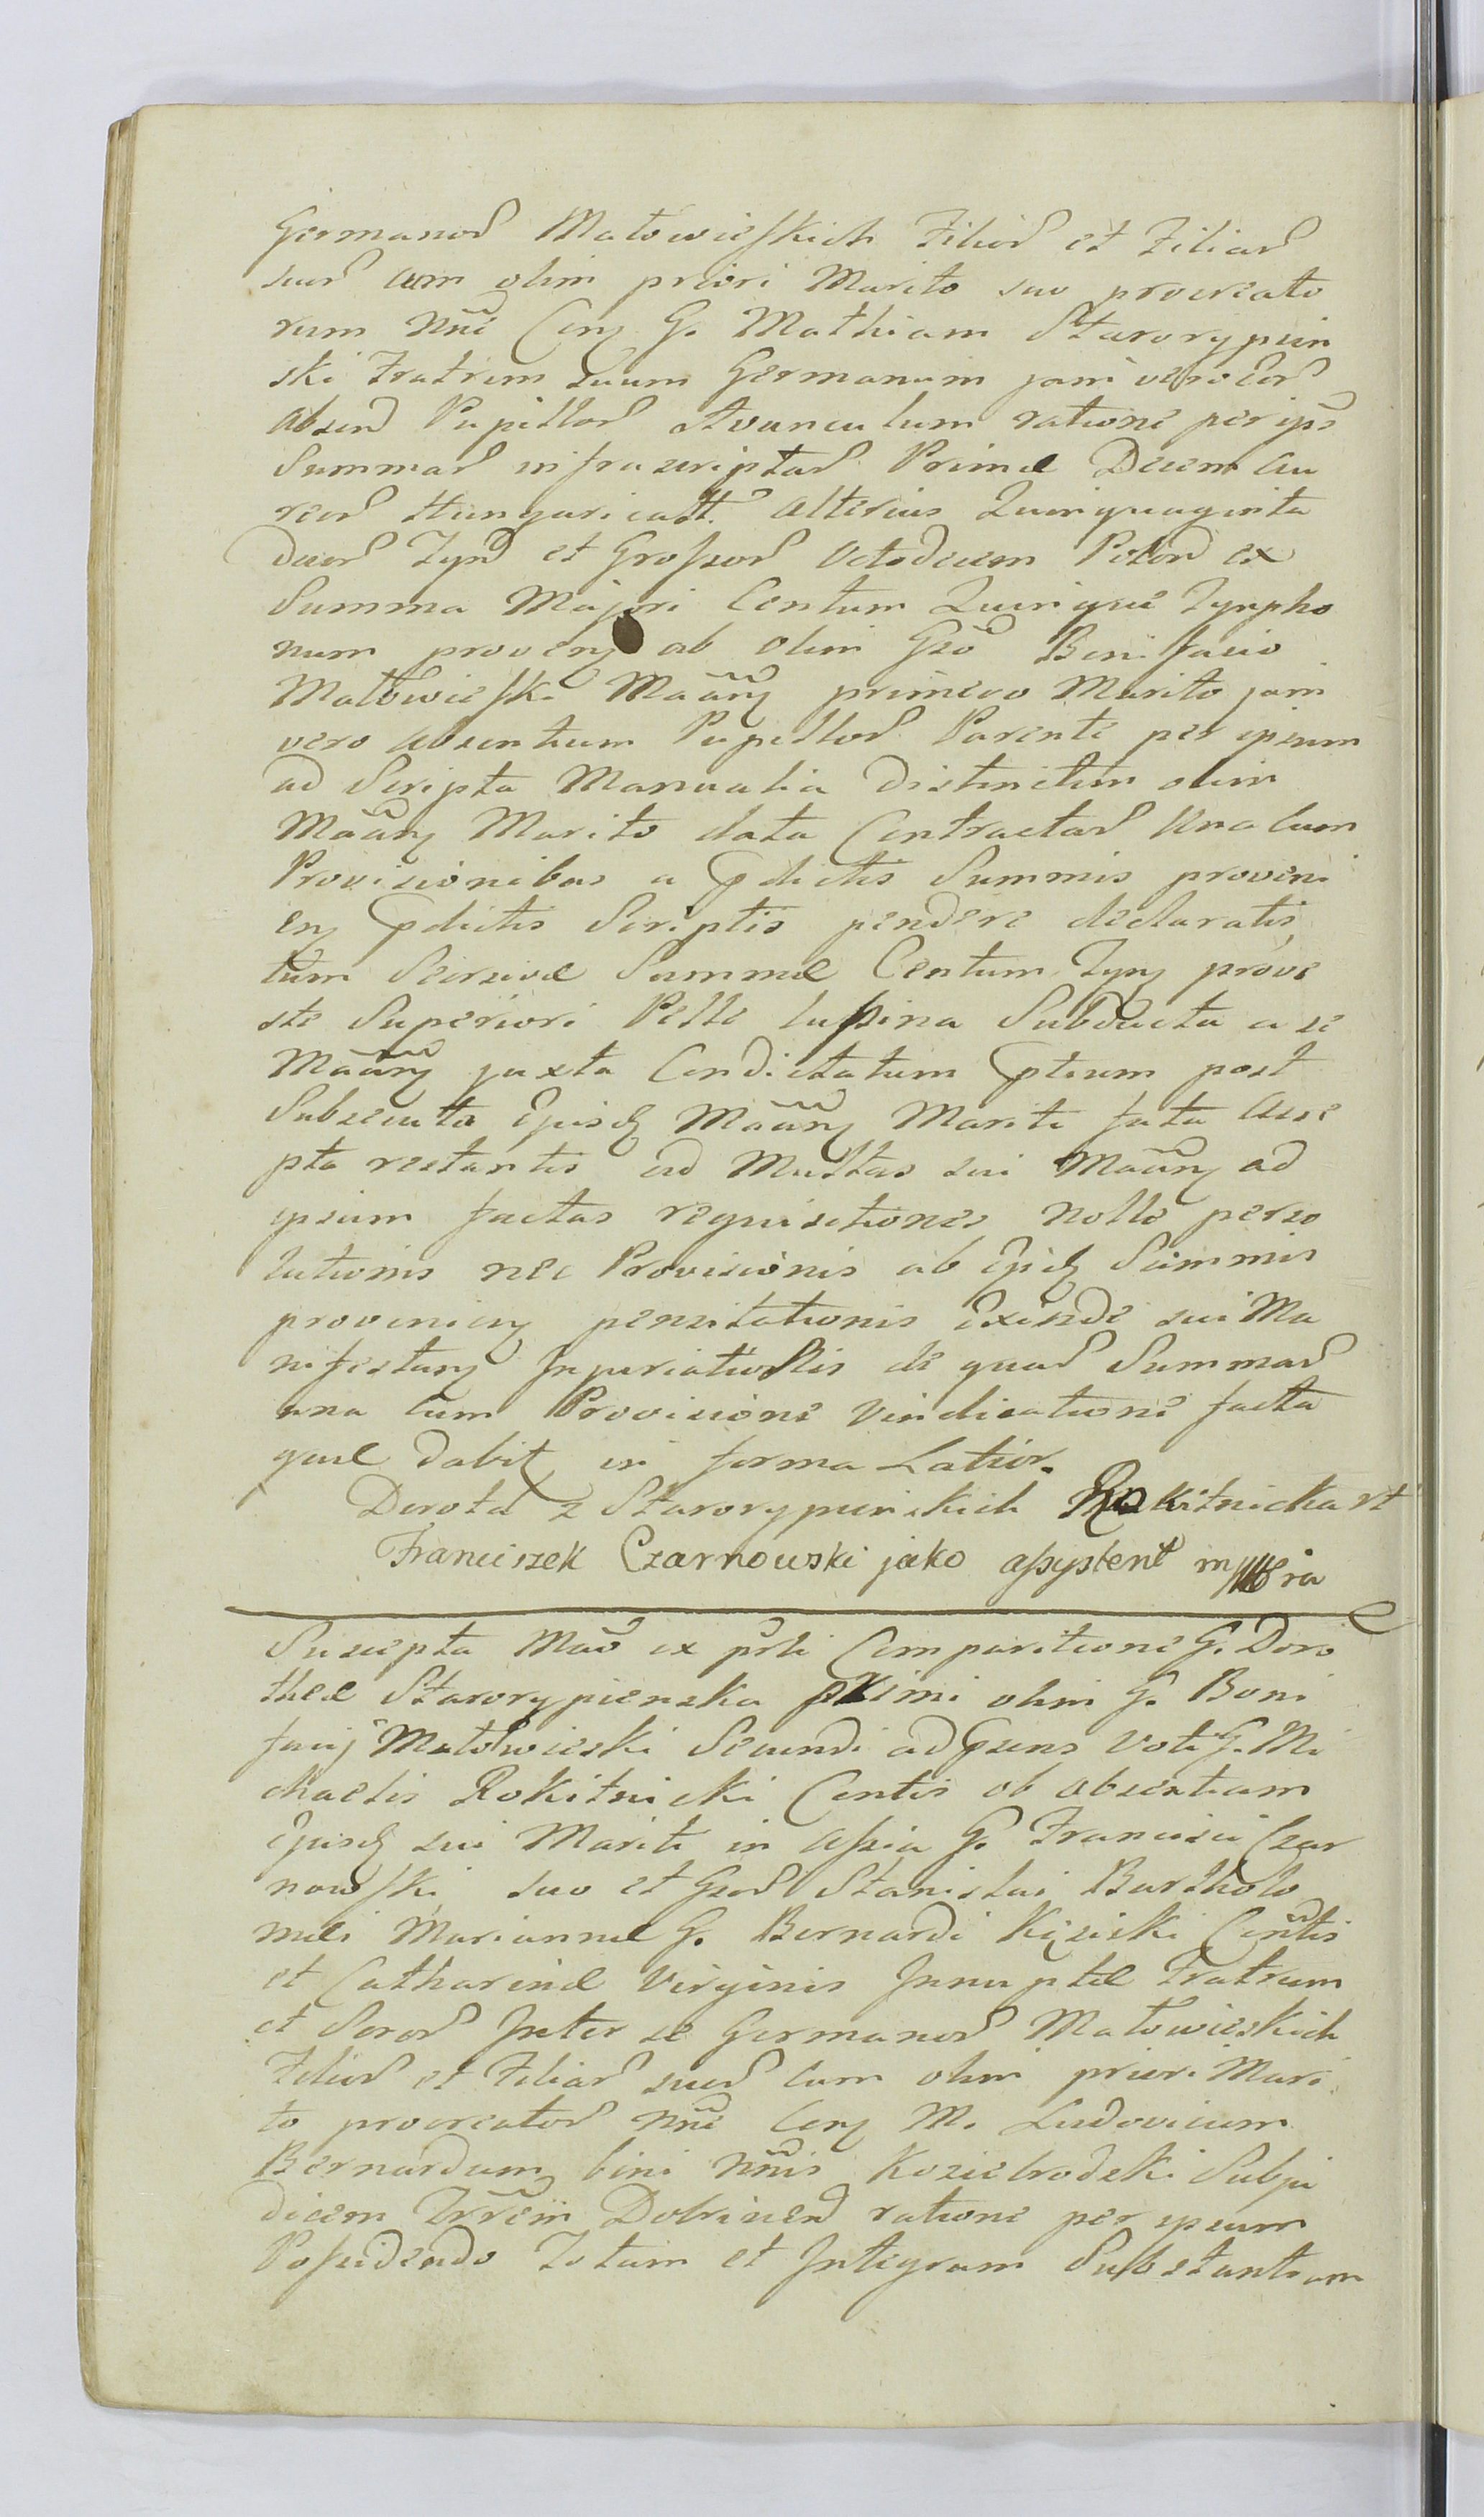 Germanor Małowieskich Filior et Filiar
suar cum olim priori Marito suo procreato
rum Nñe Conz G. Mathiam Starorypiin
ski Fratrem Suum Germanum jam vero eor
absen Pupillor Avunculum ratione per ips
Summar infrascriptar Primæ Decem Au
reor Hungaricall. alterius Quinquaginta
duor Tynf et Grossor Octodecem Polon ex
Summa Majori Centum Quinque Tynpho
num provenz ab olim Gso Bonifacio
Małowieski Maãnz primevo Marito jam
vero absentium Pupillor Parente per ipsum
ad Scripta Manualia distinctim olim
Maãnz Marito data Contractar Una cum
Provisionibus a Pdictis Summis proveni
enz Pdictis Scriptis pendere declaratis
tum Seorsivæ Summæ Centum Tynf pro ve
ste Superiori Pelle lupina Subducta a se
Maãnz juxta Condictatum Ptium post
Subsecuta Ejusd Maãnz Mariti fata acce
pta restantis ad Multas sui Maãnz ad
ipsum factas requisitiones nolle perso
lutionis nec Provisionis ab Ejsd Summis
provenienz pensitationis Exinde sui Ma
nifestanz Injuriativ Stis de quar Summar
una cum Provisione vindicatione facta
quæ dabit in forma Latior.
Dorota z Starorypinskich Rokitnicka rt
Franciszek Czarnowski jako assystent mppria
Suscepta Mão ex psti Comparitione G. Doro
theæ Starorypienska primi olim G. Boni
facij Małowieski Secundi ad Psens Voti G. Mi
chaelis Rokitnicki Contis ob absentiam
Ejusd sui Mariti in Assia G. Francisci Czar
nowski suo et Gsor Stanislai Bartholo
mæi Mariannæ G. Bernardi Kisicki Cõntis
et Catharinæ Virginis Innuptæ Fratrum
et Soror Inter se Germanor Małowieskich
Filior et Filiar suar cum olim priori Mari
to procreator Nñe Conz M. Ludovicum
Bernardum bini Nñis Koziebrodzki Subju
dicem Trrem Dobrinen ratione per ipsum
Possidendo Totam et Integram Substantiam